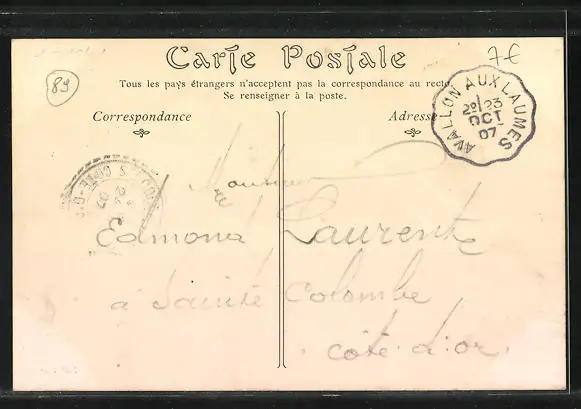 89
Carte Postale
7€
Tous les pays étrangers n'acceptent pas la correspondance au recto.
Se renseigner à la poste.
Correspondance
Adresse
AVALLON AUX LAUMES
2º 23
OCT
07
CÔTE-D'O
Monsieur
Edmond Laurent
à Sainte Colombe
Côte-d'or.